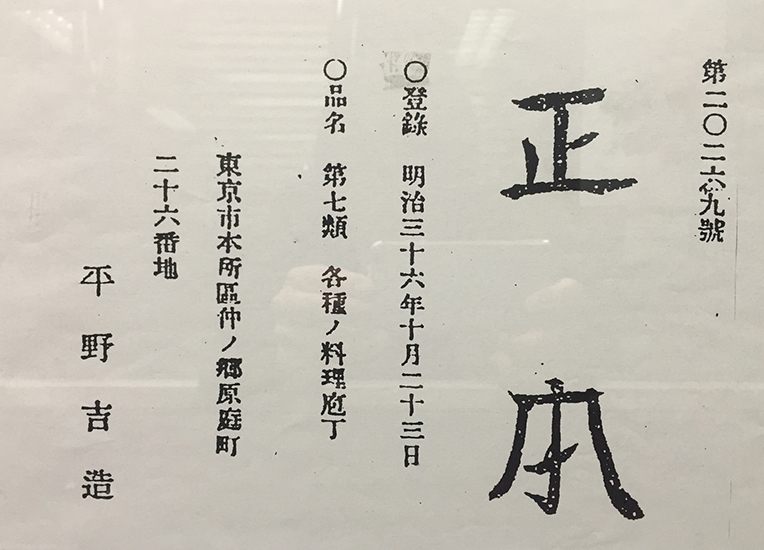 第二〇二六九號
正本
〇登錄 明治三十六年十月二十三日
〇品名 第七類 各種ノ料理庖丁
東京市本所區仲ノ鄉原庭町
二十六番地
平野吉造